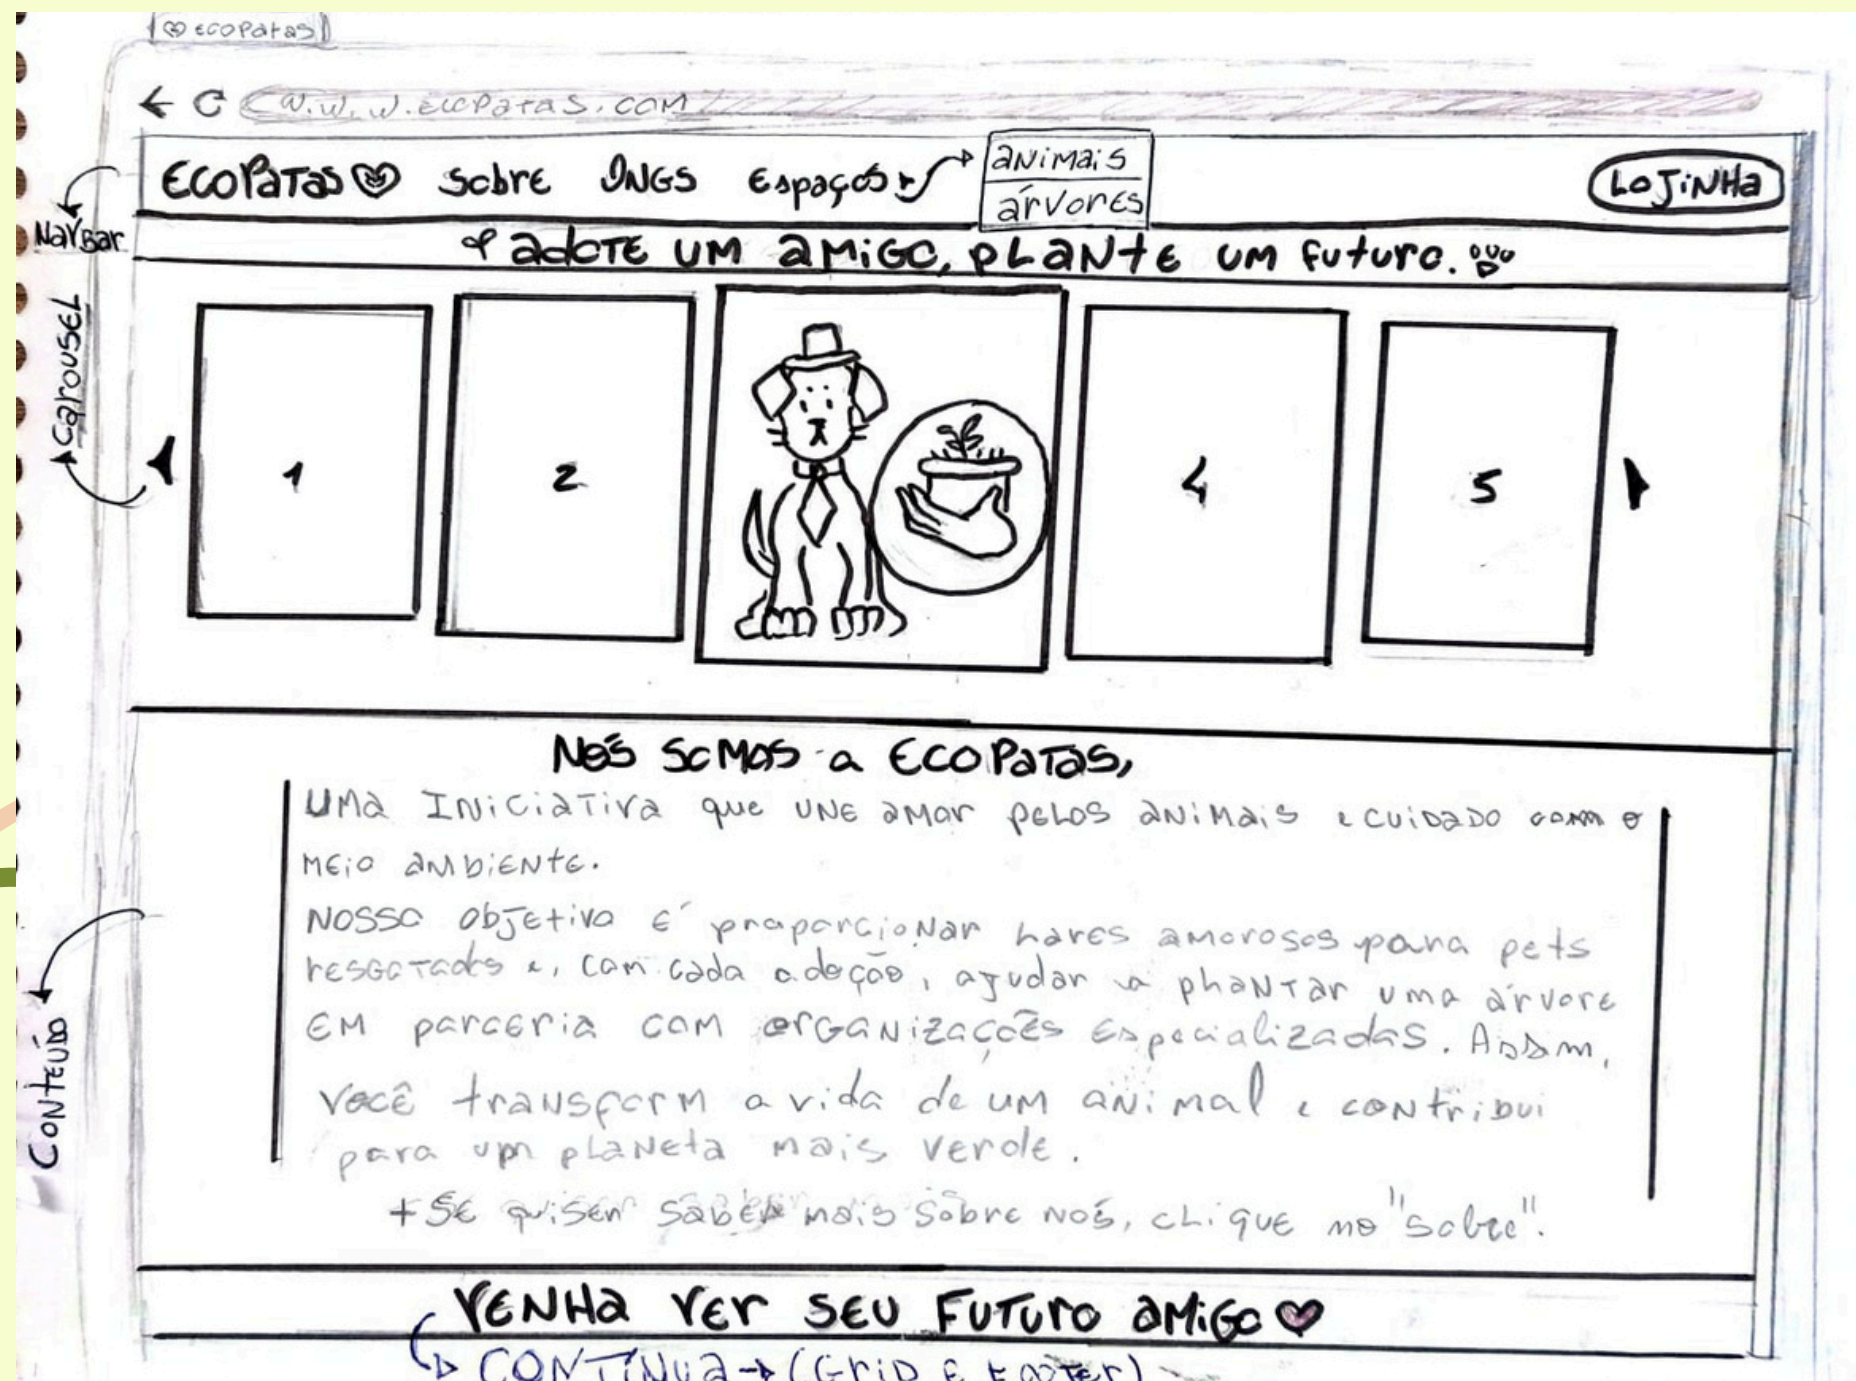 ecopatas
w.w.w.ecopatas.com
ECOPATAS sobre ONGS Espaços animais LOJINHA
árvores
Navbar
adote um amigo, plante um futuro.
Carousel
1 2 4 5
Nós somos a ECOPATAS,
uma Iniciativa que une amor pelos animais e cuidado com o
meio ambiente.
Nosso objetivo é proporcionar lares amorosos para pets
resgatados e, com cada adoção, ajudar a phantar uma árvore
em parceria com organizações especializadas. Assim,
Você transform a vida de um animal e contribui
para um planeta mais verde.
+ Se quiser saber mais sobre nós, clique no "sobre".
Conteúdo
VENHA VER SEU FUTURO AMIGO
CONTINUA → (Grid e Footer)